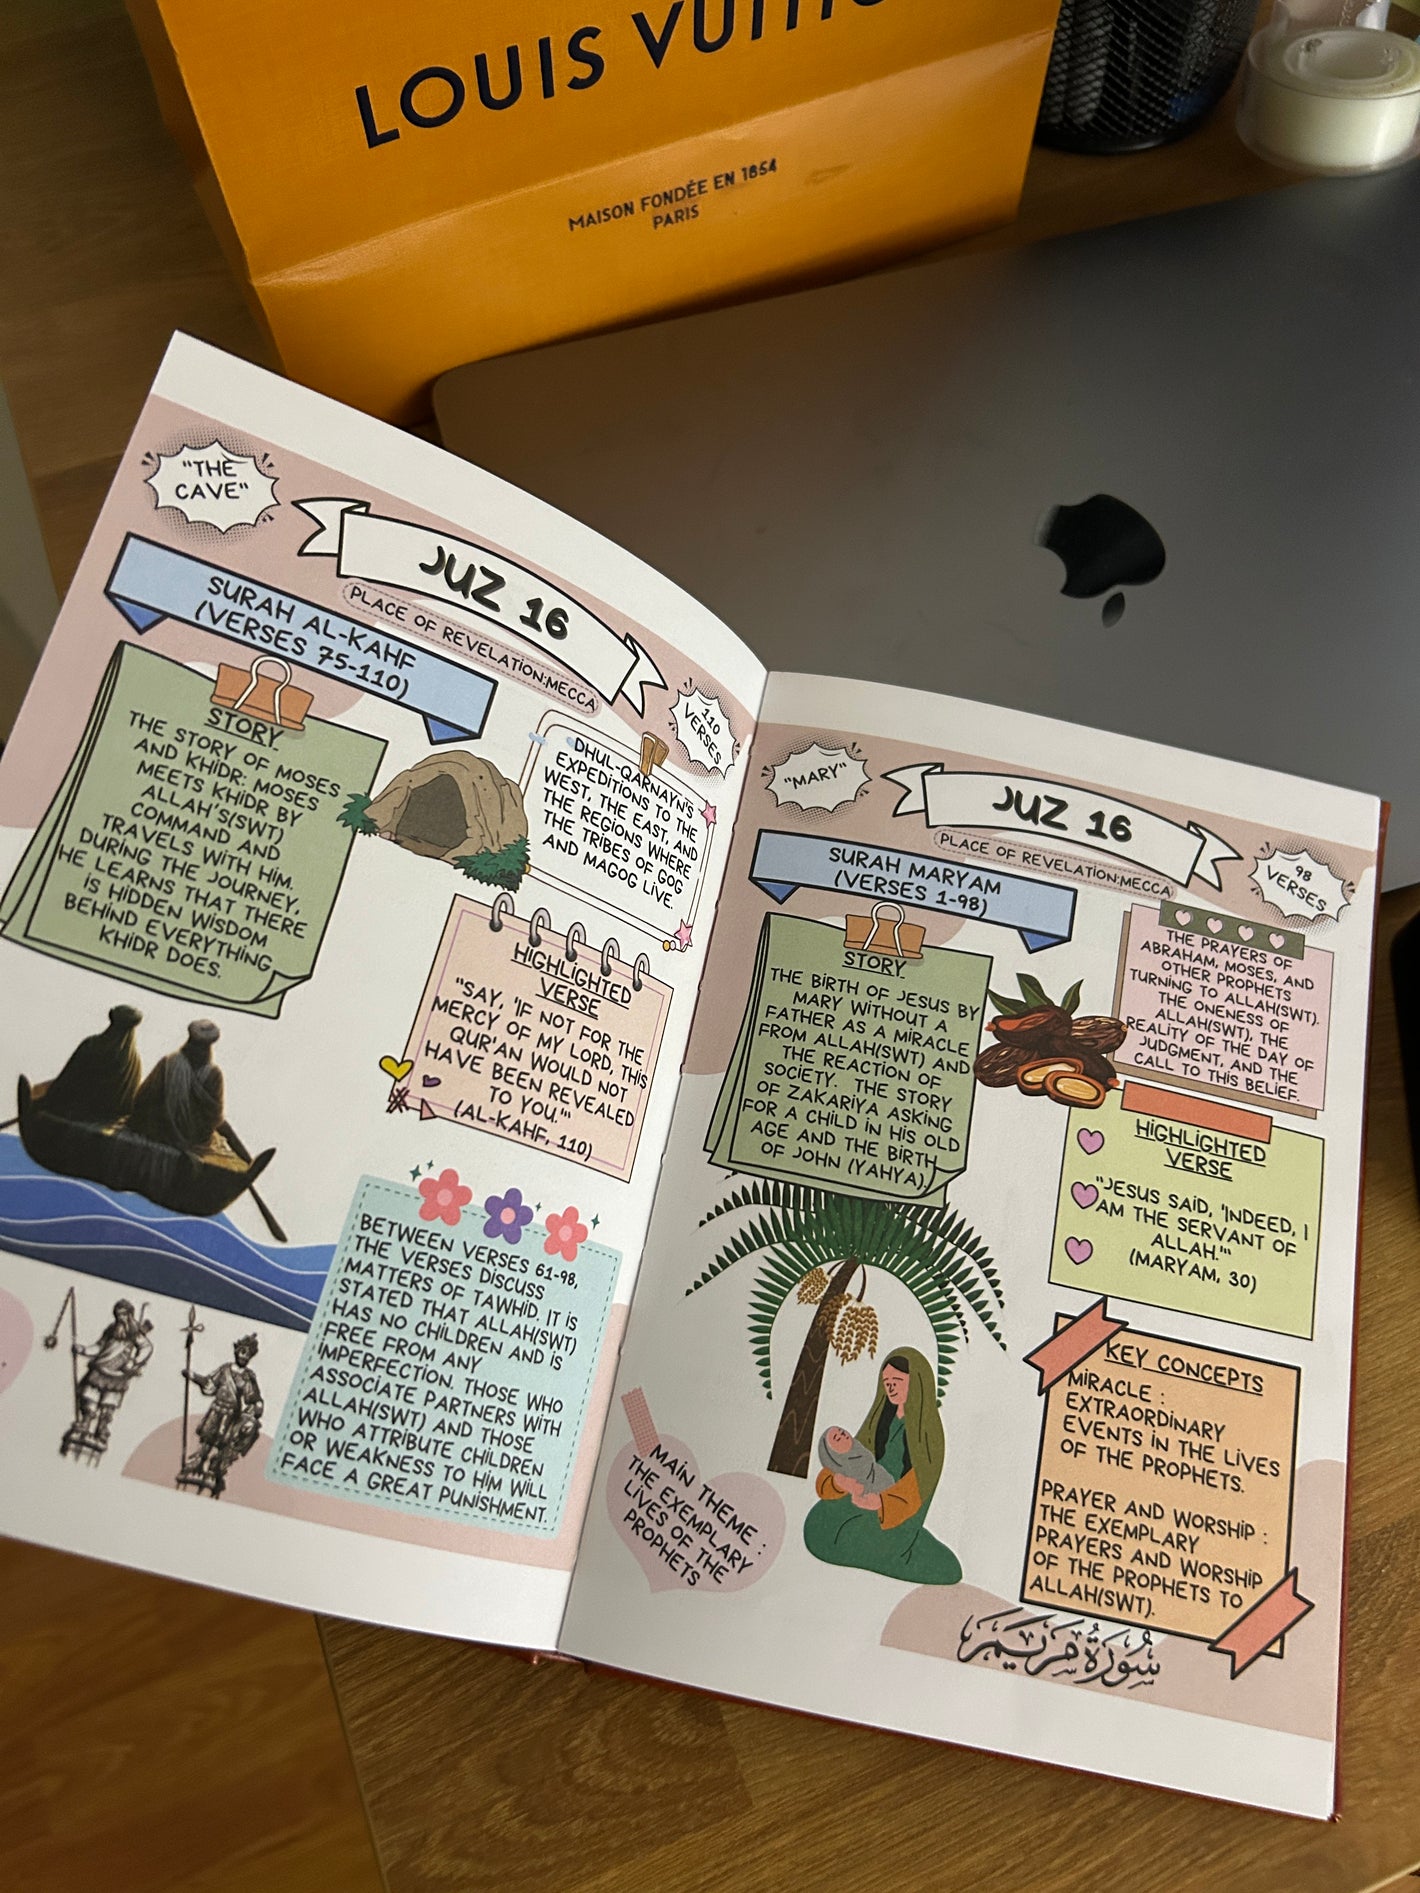 LOUIS VUITTO
MAISON FONDÉE EN 1854
PARIS
"THE
CAVE"
JUZ 16
PLACE OF REVELATION:MECCA
SURAH AL-KAHF
(VERSES 75-110)
110
VERSES
STORY
THE STORY OF MOSES
AND KHIDR: MOSES
MEETS KHIDR BY
ALLAH'S(SWT)
COMMAND AND
TRAVELS WITH HIM.
DURING THE JOURNEY,
HE LEARNS THAT THERE
IS HIDDEN WISDOM
BEHIND EVERYTHING
KHIDR DOES.
DHUL-QARNAYN'S
EXPEDITIONS TO THE
WEST, THE EAST, AND
THE REGIONS WHERE
THE TRIBES OF GOG
AND MAGOG LIVE.
HIGHLIGHTED
VERSE
"SAY, 'IF NOT FOR THE
MERCY OF MY LORD, THIS
QUR'AN WOULD NOT
HAVE BEEN REVEALED
TO YOU.'"
(AL-KAHF, 110)
BETWEEN VERSES 61-98,
THE VERSES DISCUSS
MATTERS OF TAWHID. IT IS
STATED THAT ALLAH(SWT)
HAS NO CHILDREN AND IS
FREE FROM ANY
IMPERFECTION. THOSE WHO
ASSOCIATE PARTNERS WITH
ALLAH(SWT) AND THOSE
WHO ATTRIBUTE CHILDREN
OR WEAKNESS TO HIM WILL
FACE A GREAT PUNISHMENT.
"MARY"
JUZ 16
PLACE OF REVELATION:MECCA
SURAH MARYAM
(VERSES 1-98)
98
VERSES
STORY
THE BIRTH OF JESUS BY
MARY WITHOUT A
FATHER AS A MIRACLE
FROM ALLAH(SWT) AND
THE REACTION OF
SOCIETY. THE STORY
OF ZAKARIYA ASKING
FOR A CHILD IN HIS OLD
AGE AND THE BIRTH
OF JOHN (YAHYA).
THE PRAYERS OF
ABRAHAM, MOSES, AND
OTHER PROPHETS
TURNING TO ALLAH(SWT).
THE ONENESS OF
ALLAH(SWT), THE
REALITY OF THE DAY OF
JUDGMENT, AND THE
CALL TO THIS BELIEF.
HIGHLIGHTED
VERSE
"JESUS SAID, 'INDEED, I
AM THE SERVANT OF
ALLAH.'"
(MARYAM, 30)
KEY CONCEPTS
MIRACLE :
EXTRAORDINARY
EVENTS IN THE LIVES
OF THE PROPHETS.
PRAYER AND WORSHIP :
THE EXEMPLARY
PRAYERS AND WORSHIP
OF THE PROPHETS TO
ALLAH(SWT).
MAIN THEME :
THE EXEMPLARY
LIVES OF THE
PROPHETS
سُورَةُ مَرْيَمَ